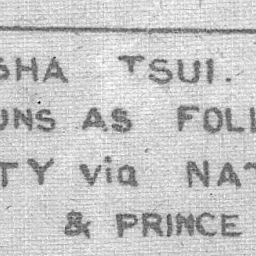 SHA TSUI.
UNS AS FOLL
TY via NAT
& PRINCE